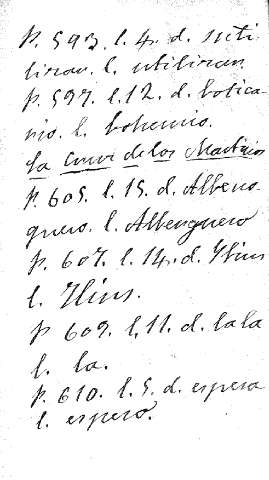 p. 593. l. 4. d. suti
liran. l. utiliran
p. 597. l. 12. d. botica-
rio. l. bohemio.
La Cruz de los Martires
p. 605. l. 15. d. Albeno
guero. l. Albenguero
p. 607. l. 14. d.
l.
p 609. l. 11. d. la la
l. la.
p. 610. l. 5. d. espera
l. espero.